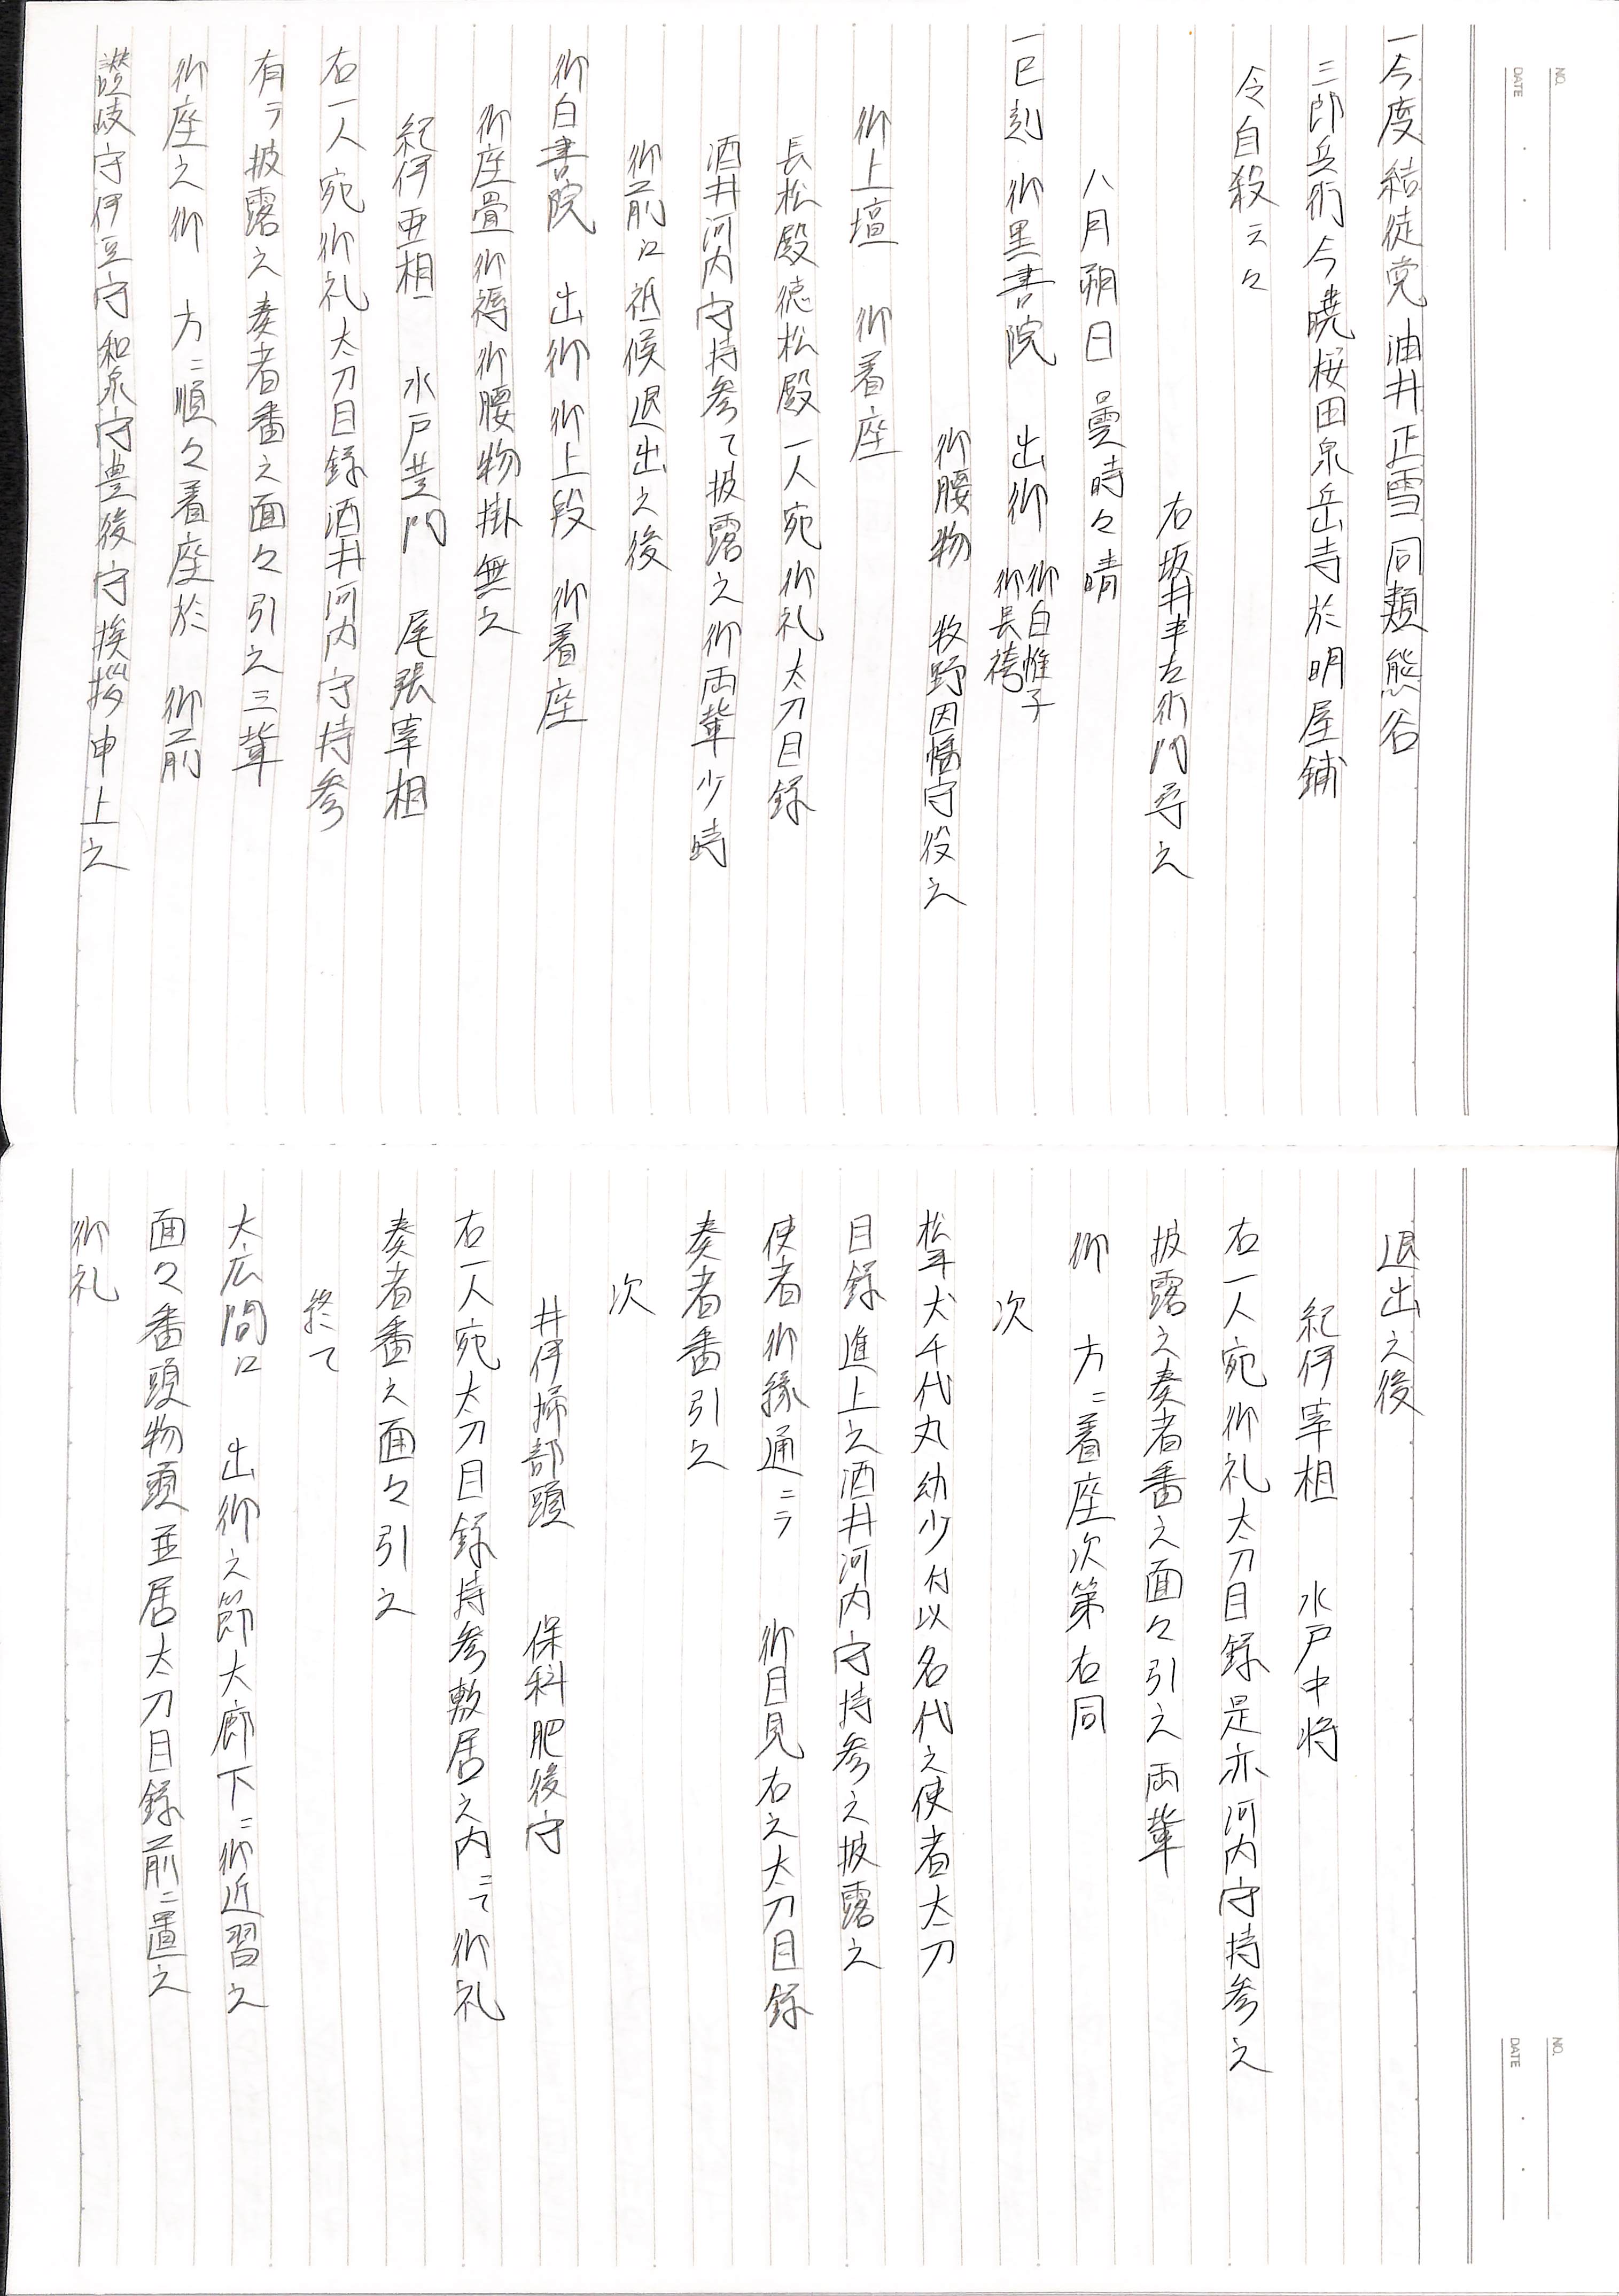 NO.
DATE
一今度結徒党油井正雪同類熊谷
三郎兵衛今暁桜田泉岳寺於明屋鋪
令自殺云々
右坂井半左衛門尋之
八月朔日曇時々晴
一巳刻御黒書院 出御 御白帷子 御長袴
御腰物 牧野因幡守役之
御上壇 御着座
長松殿徳松殿一人宛御礼太刀目録
酒井河内守持参て披露之御両輩少時
御前江祗候退出之後
御白書院 出御御上段 御着座
御座畳御褥御腰物掛無之
紀伊亜相 水戸黄門 尾張宰相
右一人宛御礼太刀目録酒井河内守持参
有テ披露之奏者番之面々引之三輩
御座之御 方ニ順々着座於 御前
讃岐守伊豆守和泉守豊後守挨拶申上之
NO.
DATE
退出之後
紀伊宰相 水戸中将
右一人宛御礼太刀目録是亦河内守持参之
披露之奏者番之面々引之両輩
御 方ニ着座次第右同
次
松平犬千代丸幼少付以名代之使者太刀
目録進上之酒井河内守持参之披露之
使者御縁通ニテ 御目見右之太刀目録
奏者番引之
次
井伊掃部頭 保科肥後守
右一人宛太刀目録持参敷居之内ニて御礼
奏者番之面々引之
終て
大広間江 出御之節大廊下ニ御近習之
面々番頭物頭並居太刀目録前ニ置之
御礼